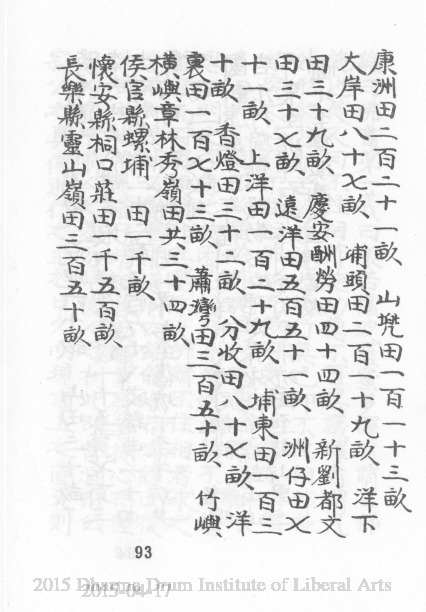 康洲田二百二十一畝、山兜田一百一十三畝
大岸田八十七畝、埔頭田二百一十九畝、洋下
田三十九畝、慶安酬勞田四十四畝、新劉都文
田三十七畝、遠洋田五百五十一畝、洲仔田七
十一畝、上洋田一百二十九畝、埔東田一百三
十畝、香燈田三十二畝、分收田八十七畝、洋
裏田一百七十三畝、蕭灣田三百五十畝、竹嶼、
橫嶼章林秀嶺田共三十四畝、
侯官縣螺埔 田一千畝、
懷安縣桐口莊田一千五百畝、
長樂縣靈山嶺田三百五十畝、
93
2015 Dharma Drum Institute of Liberal Arts
2015-04-17